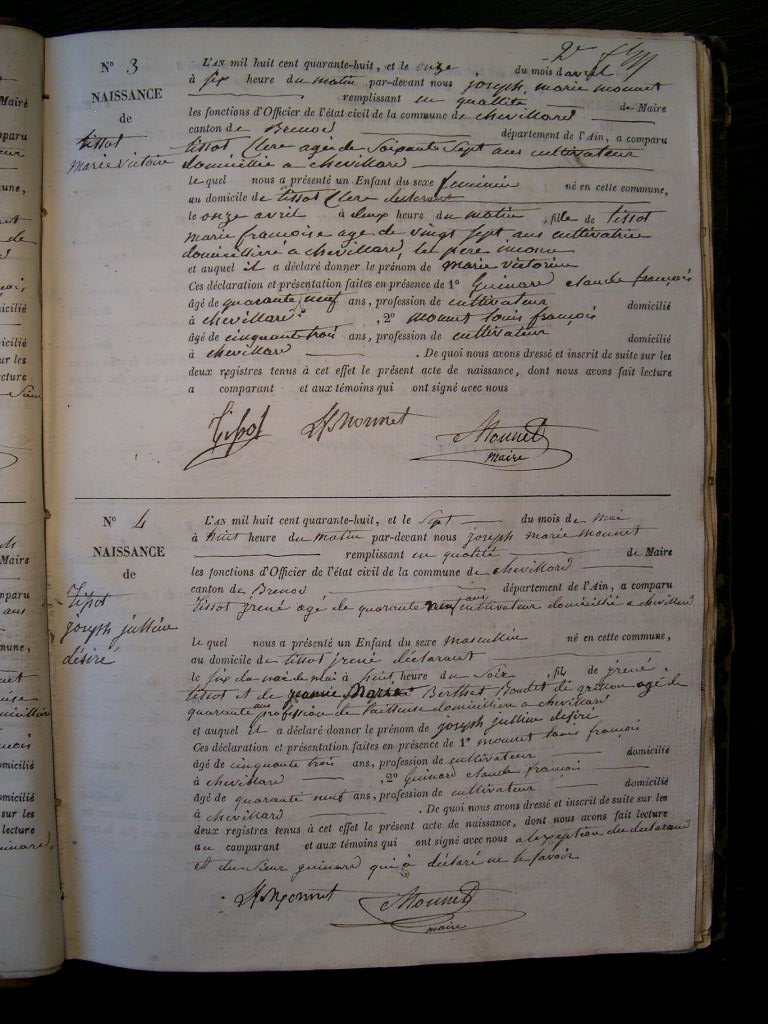 2e
N° 3
NAISSANCE
de
tissot
marie victoire
L'AN mil huit cent quarante-huit, et le onze du mois d'avril
à six heure du matin par-devant nous joseph marie monnet
remplissant en quallité de Maire
les fonctions d'Officier de l'état civil de la commune de chevillard
canton de Brenod département de l'Ain, a comparu
tissot Clere agé de soixante sept ans cultivateur
domicillié a chevillard
le quel nous a présenté un Enfant du sexe feminin né en cette commune,
au domicile de tissot Clere declarant
le onze avril à deux heure du matin, fille de tissot
marie francoise age de vingt sept ans cultivatrice
domicillieré a chevillard, le pere inconu
et auquel il a déclaré donner le prénom de marie victorine
Ces déclaration et présentation faites en présence de 1° Guinard claude françois
âgé de quarante neuf ans, profession de cultivateur domicilié
à chevillard, 2° monnet louis françois
âgé de cinquante trois ans, profession de cultivateur domicilié
à chevillard. De quoi nous avons dressé et inscrit de suite sur les
deux registres tenus à cet effet le présent acte de naissance, dont nous avons fait lecture
a comparant et aux témoins qui ont signé avec nous
Tissot Monnet Monnet
maire
N° 4
NAISSANCE
de
Tissot
joseph jullien
désiré
L'AN mil huit cent quarante-huit, et le sept du mois de mai
à huit heure du matin par-devant nous joseph marie monnet
remplissant en qualité de Maire
les fonctions d'Officier de l'état civil de la commune de chevillard
canton de Brenod, département de l'Ain, a comparu
tissot jrené age de quarante neuf ans cultivateur domicillié a chevillard
le quel nous a présenté un Enfant du sexe masculine né en cette commune,
au domicile de tissot jrené déclarant
le six du moi de mai à huit heure du soir, fils de jrené
tissot et de Berthet agé de
quarante ans profession de tailleuse domiciliere a chevillard
et auquel il a déclaré donner le prénom de joseph jullien désiré
Ces déclaration et présentation faites en présence de 1° monnet louis françois
âgé de cinquante trois ans, profession de cultivateur domicilié
à chevillard, 2° Guinard claude francois
âgé de quarante neuf ans, profession de cultivateur domicilié
à chevillard. De quoi nous avons dressé et inscrit de suite sur les
deux registres tenus à cet effet le présent acte de naissance, dont nous avons fait lecture
au comparant et aux témoins qui ont signé avec nous a lexeption du declarant
et du sieur guinard qui à déclaré ne le savoir
Monnet Monnet
maire